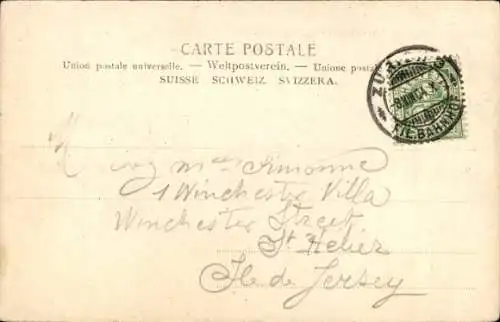 CARTE POSTALE
Union postale universelle. — Weltpostverein. — Unione postal
SUISSE SCHWEIZ SVIZZERA.
BAHNHOF
1 Winchester Villa
Winchester Street
St Helier
Ile de Jersey